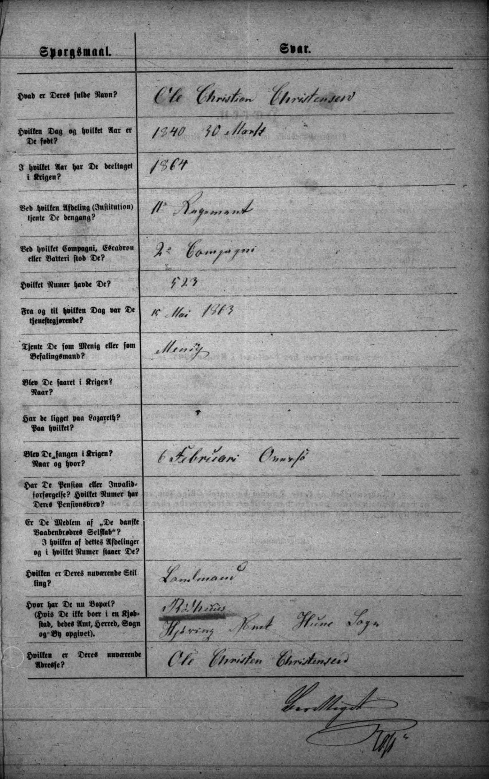 Spørgsmaal. Svar.
Hvad er Deres fulde Navn? Ole Christian Christensen
Hvilken Dag og hvilket Aar er
De født? 1840 30 Marts
I hvilket Aar har De deeltaget
i Krigen? 1864
Ved hvilken Afdeling (Institution)
tjente De dengang? 11te Regement
Ved hvilket Compagni, Escadron
eller Batteri stod De? 2de Compagni
Hvilket Numer havde De? 523
Fra og til hvilken Dag var De
tjenestegjørende? Mai 1863
Tjente De som Menig eller som
Befalingsmand? Menig
Blev De saaret i Krigen?
Naar?
Har de ligget paa Lazareth?
Paa hvilket?
Blev De fangen i Krigen?
Naar og hvor? 6 Februari Oversø
Har De Pension eller Invalid-
forsørgelse? Hvilket Numer har
Deres Pensionsbrev?
Er De Medlem af „De danske
Vaabenbrødres Selskab"?
I hvilken af dettes Afdelinger
og i hvilket Numer staaer De?
Hvilken er Deres nuværende Stil-
ling? Landmand
Hvor har De nu Bopæl?
(Hvis De ikke boer i en Kjøb-
stad, bedes Amt, Herred, Sogn
og By opgivet). Hjøring Amt Hune Sogn
Hvilken er Deres nuværende
Adresse? Ole Christen Christensen